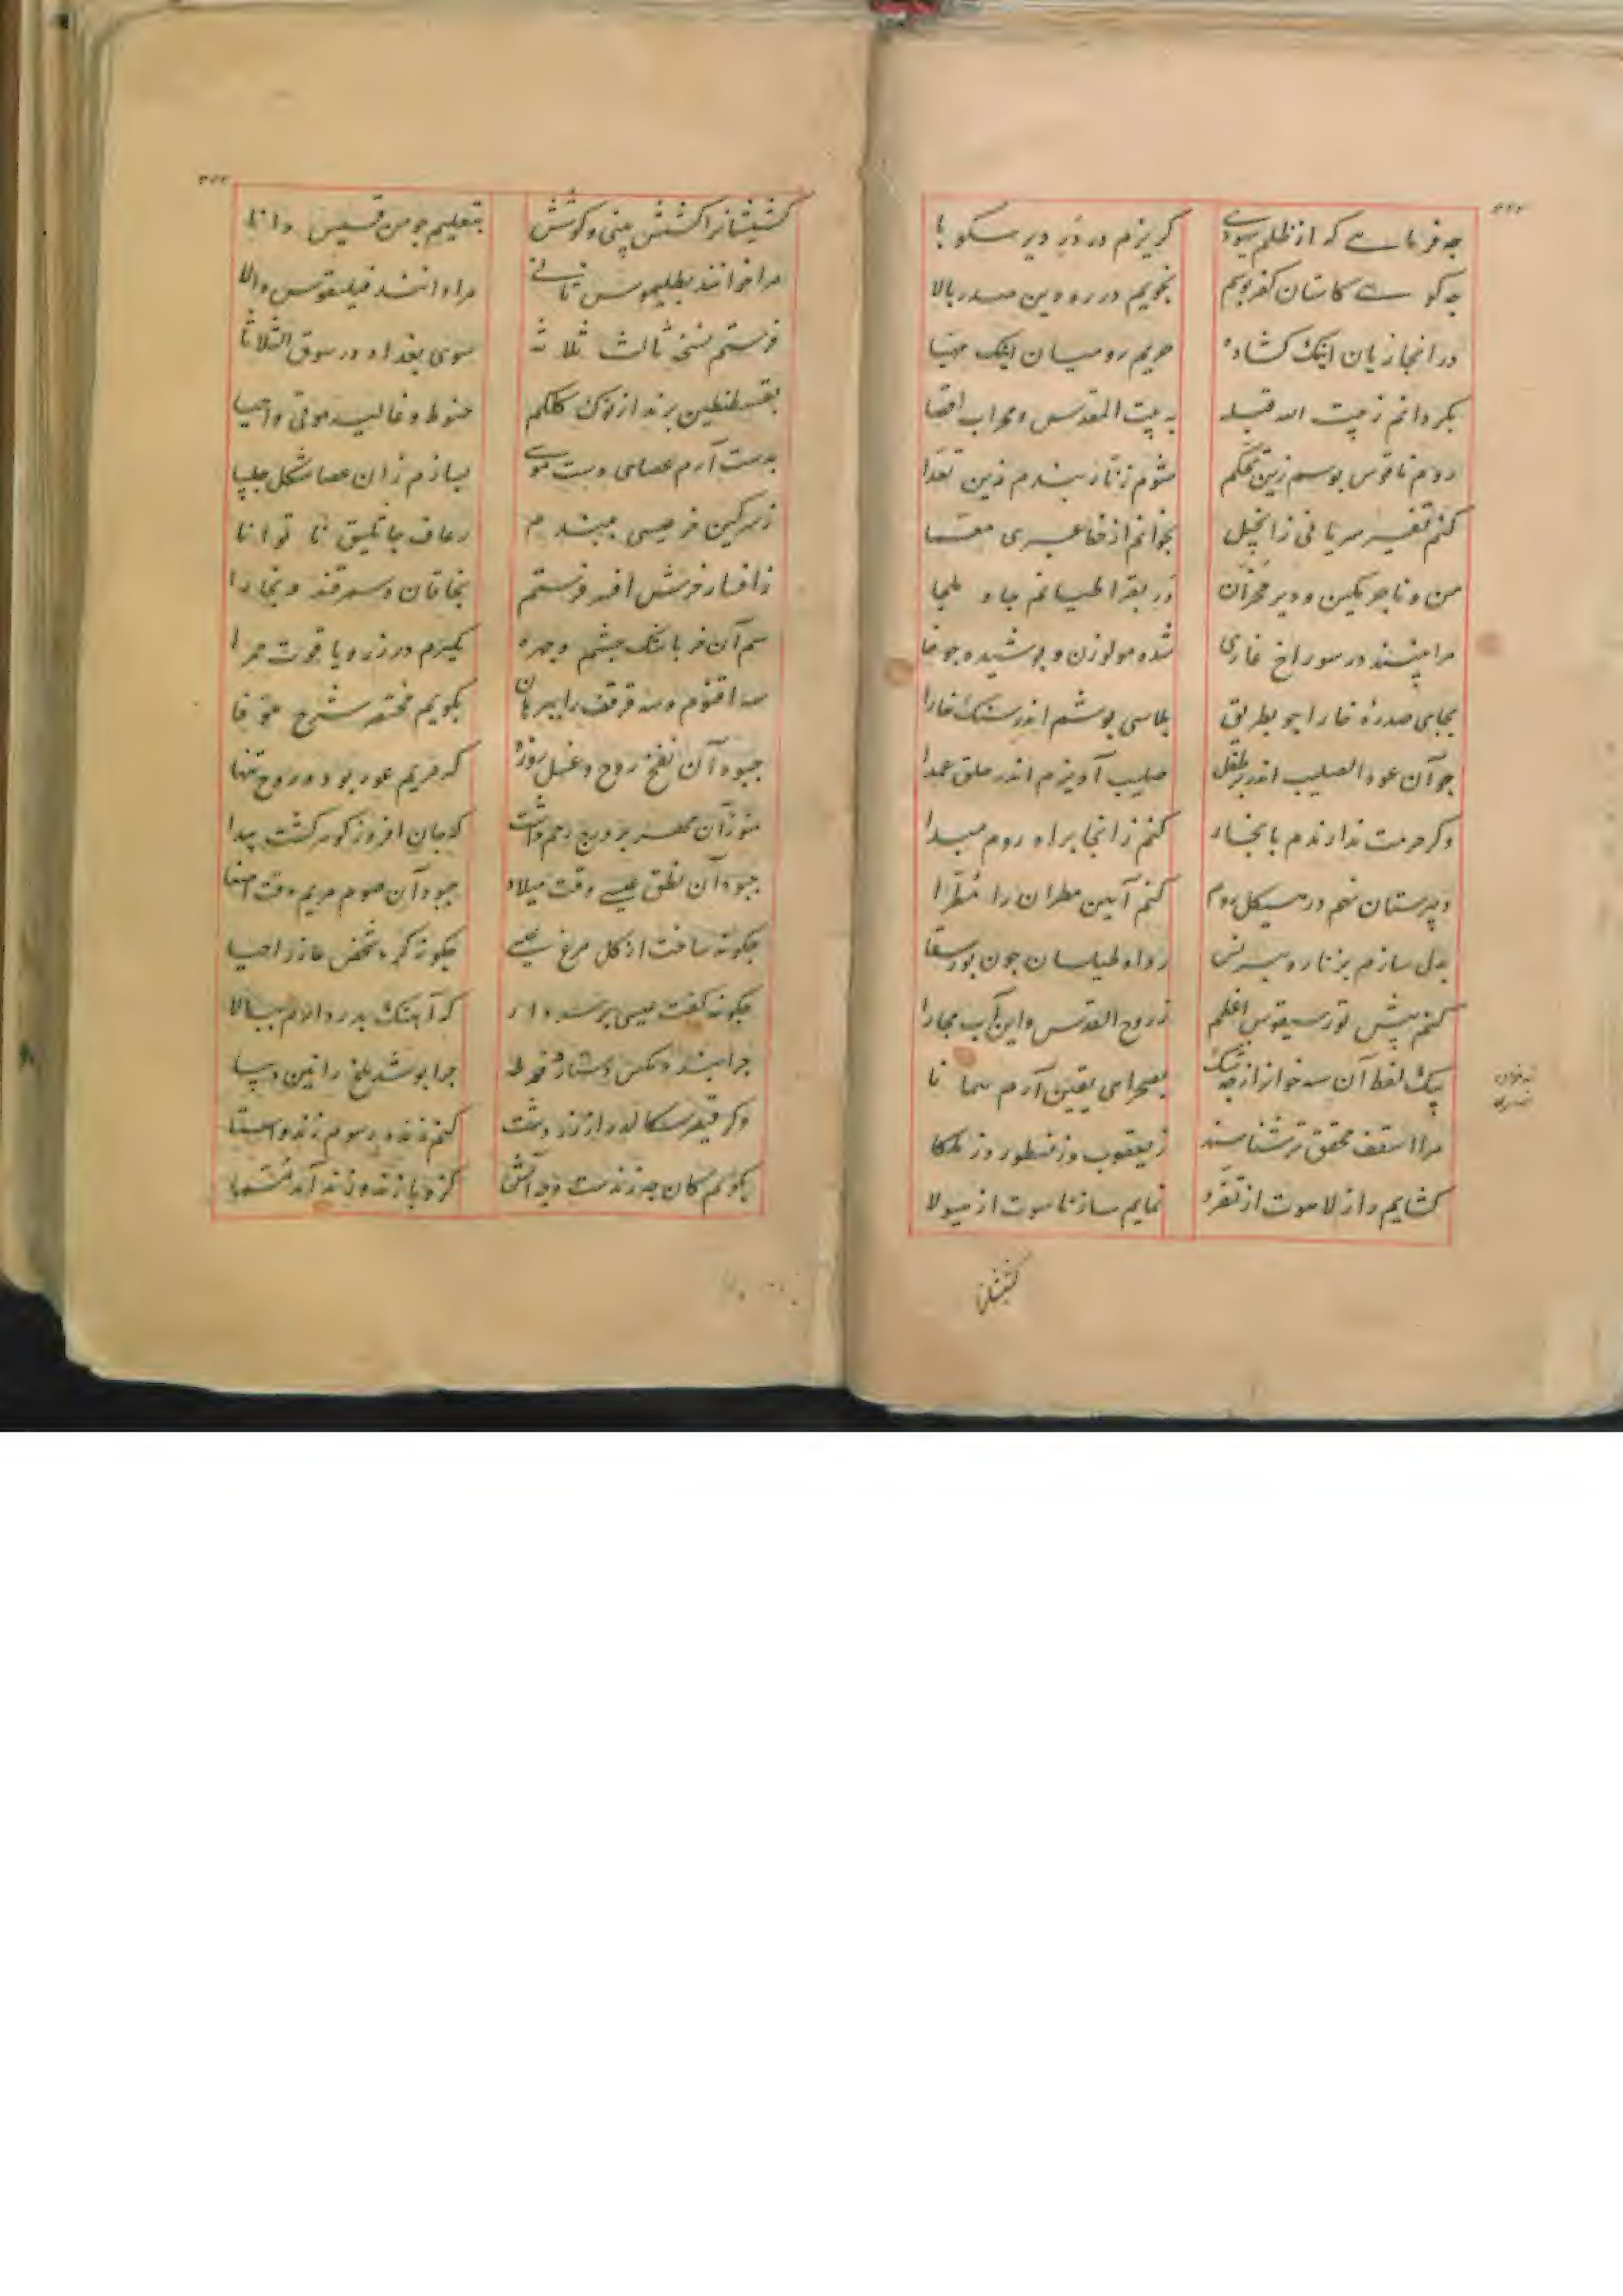 چه فرمایی که از ظلم یهودی گریزم در در دیر سکوبا
چه گویی کاستان کفر جویم نجویم در ره دین صدر بالا
در ابخازیان اینک گشاده حریم رومیان اینک مهیا
بگردانم ز بیت الله قبله به بیت المقدس و محراب اقصا
روم ناقوس بوسم زین تحکم شوم زنار بندم زین تعدا
کنم تفسیر سریانی ز انجیل بخوانم از خط عبری معما
من و ناجرمکین و دیر مخران در بقراطیانم جا و ملجا
مرا بینند در سوراخ غاری شده مولوزن و پوشیده چوخا
بجای صدره خارا چو بطریق پلاسی پوشم اندر سنک خارا
چو آن عود الصلیب اندر بر طفل صلیب آویزم اندر حلق عمدا
وگر حرمت ندارندم بابخاز کنم زانجا براه روم مبدا
دبیرستان نهم در هیکل روم کنم آیین مطران را مطرا
بدل سازم بزنار و ببرنس رداء طیلسان چون پور سقا
کنم پیش تورسیقوس اعظم ز روح القدس و ابن و اب مجارا
بیک لفظ آن سه خوان از چه شک بصحرای یقین آرم همانا
مرا اسقف محقق تر شناسد ز یعقوب و ز نسطور و ز ملکا
گشایم راز لاهوت از تفرد نمایم ساز ناسوت از هیولا
کشیشانرا کشش بینی و کوشش بتعلیم چو من قسیس دانا
مرا خوانند بطلیموس ثانی مرا دانند فیلقوس والا
فرستم نسخه ثالث ثلاثه سوی بغداد در سوق الثلاثا
بقسطنطین برند از نوک کلکم حنوط و غالیه موتی و احیا
بدست آرم عصای دست موسی بسازم زان عصا شکل چلیپا
ز سرگین خر عیسی ببندم رعاف جاثلیق ناتوانا
ز افسار خرش افسر فرستم بخاقان سمرقند و بخارا
سم آن خر باشک چشم و چهره بگیرم در زر و یاقوت حمرا
سه اقنوم و سه قرقف را ببرهان بگویم مختصر شرح موفا
چه بود آن نفخ روح و غسل روزه که مریم عور بود و روح تنها
هنوز آن مهر بر درج رحم داشت که جان افروز گوهر گشت پیدا
چه بود آن نطق عیسی وقت میلاد چه بود آن صوم مریم وقت اصغا
چگونه ساخت از گل مرغ عیسی چگونه کرد شخص عازر احیا
چگونه گفت عیسی بر سر دار که آهنگ پدر دارم ببالا
وگر قیصر سگالد راز زردشت کنم زنده رسوم زند و استا
بگویم کان چه زندست و چه آتش کزو پازند و زند آمد مسما